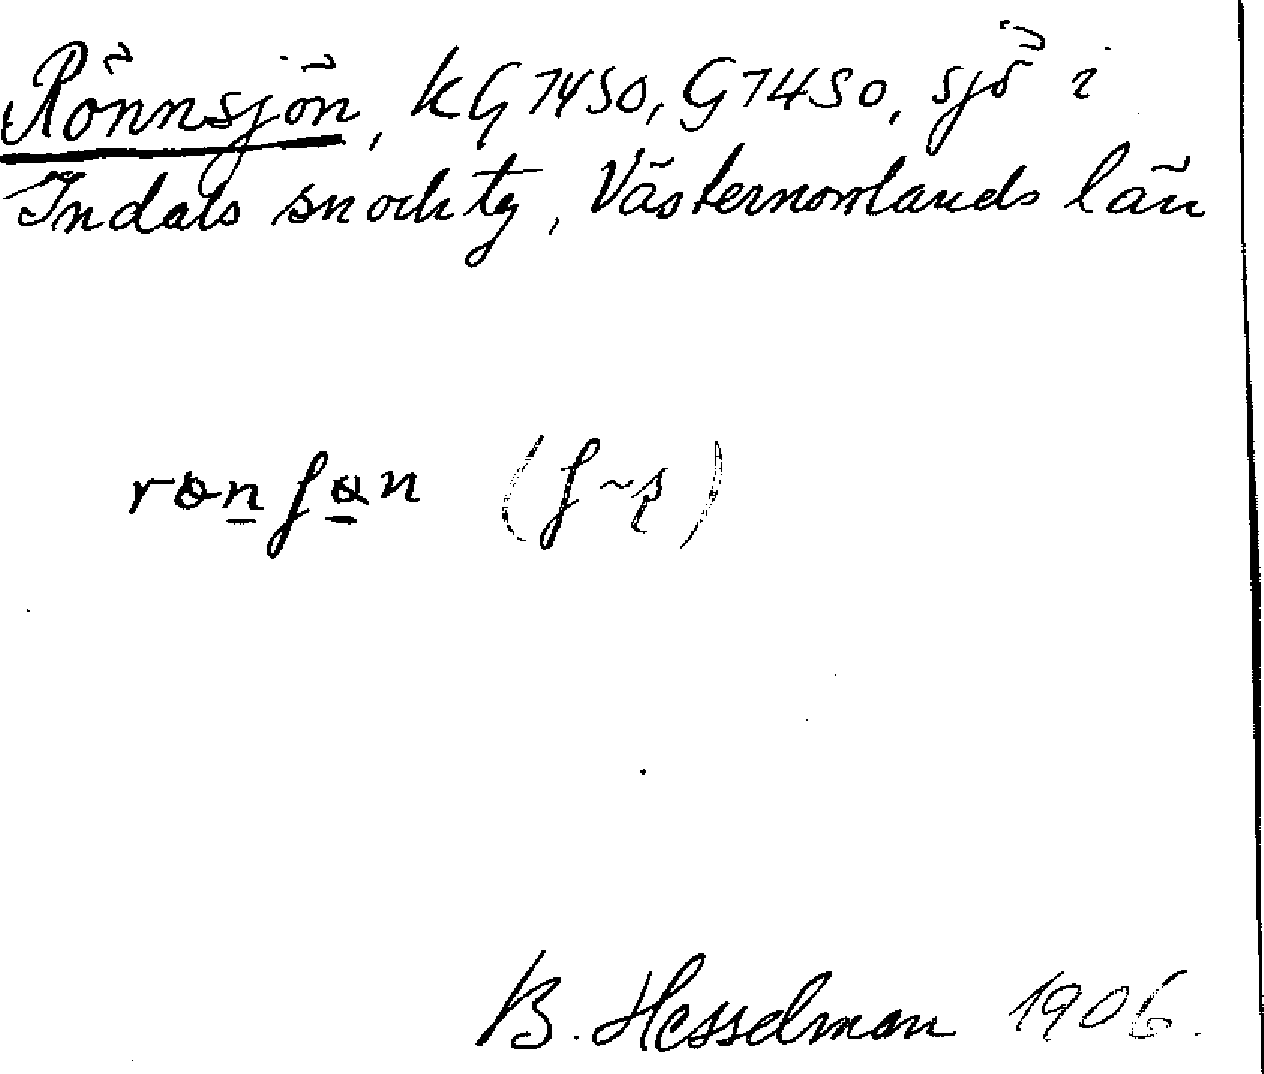 Rönnsjön, kG 7450, G7450, sjö i
Indals sn och tg, Västernorrlands län
rɵnʃɵn (ʃ~ʂ)
B. Hesselman 1906.